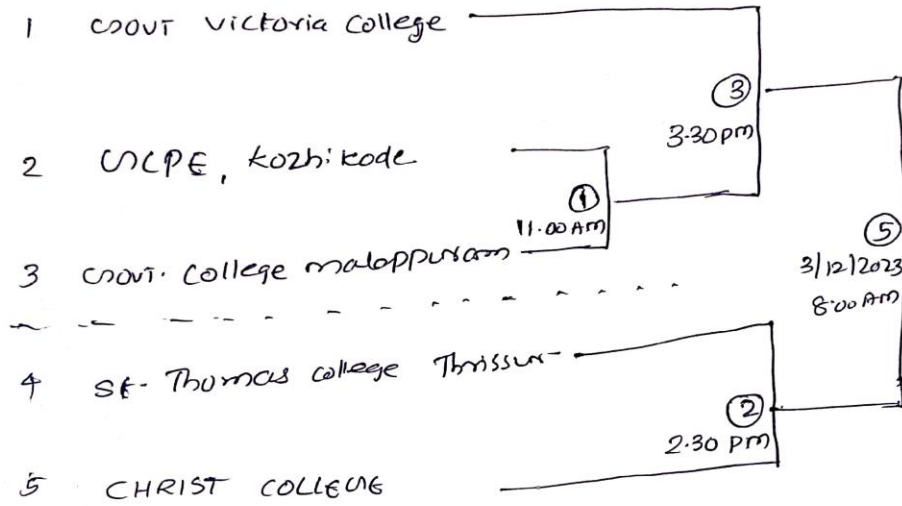 1 GOVT Victoria College
③
3.30 pm
2 GCPE, Kozhikode
①
11.00 AM
3 Govt. College malappuram
⑤
3/12/2023
8.00 AM
4 St. Thomas college Thrissur
②
2.30 pm
5 CHRIST COLLEGE